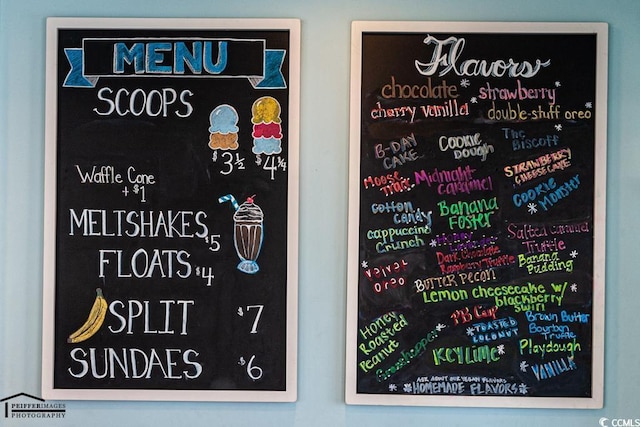 MENU
SCOOPS
$3½ $4¼
Waffle Cone
+ $1
MELTSHAKES $5
FLOATS $4
SPLIT $7
SUNDAES $6
PEIFFERIMAGES
PHOTOGRAPHY
Flavors
chocolate strawberry
cherry vanilla double-stuff oreo
B-DAY CAKE
COOKIE DOUGH
THE Biscoff
STRAWBERRY CHEESECAKE
MOOSE TRAX
Midnight caramel
COOKIE MONSTER
cotton candy
Banana Foster
cappuccino Crunch
Salted caramel Truffle
Dark Chocolate Raspberry Truffle
Banana Pudding
Velvet Oreo
BUTTER PECAN
Lemon cheesecake w/ blackberry swirl
Honey Roasted Peanut
PB Cup
TOASTED COCONUT
Brown Butter Bourbon Truffle
Grasshopper
KEY LIME
Playdough
VANILLA
ASK ABOUT OUR VEGAN FLAVORS
HOMEMADE FLAVORS
© CCMLS